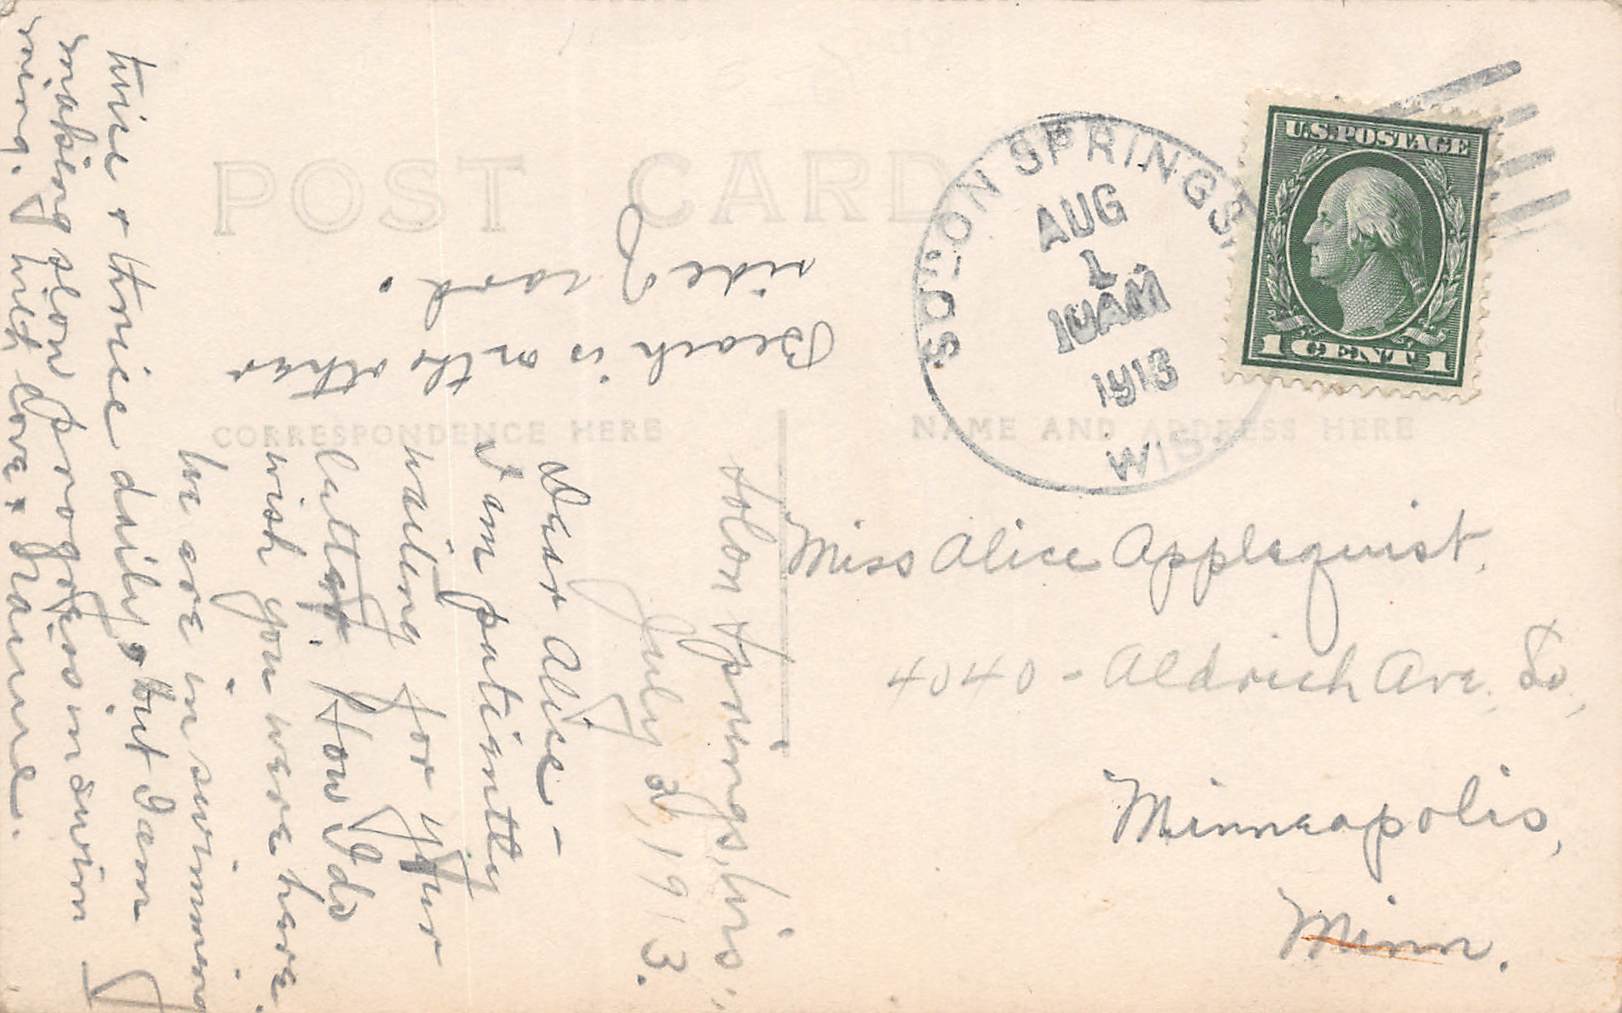 POST CARD
CORRESPONDENCE HERE
NAME AND ADDRESS HERE
SOLON SPRINGS,
AUG
1
10AM
1913
WIS.
U.S. POSTAGE
1 CENT 1
Miss Alice Applequist,
4040 - Aldrich Ave. So,
Minneapolis,
Minn.
Solon Springs, Wis.,
July 31, 1913.
Dear Alice -
I am patiently
waiting for your
letter. How I do
wish you were here.
We are in swimming
twice & thrice daily, but I am
making slow progress in swim
ming. With love,
Beach is on the other
side of card.